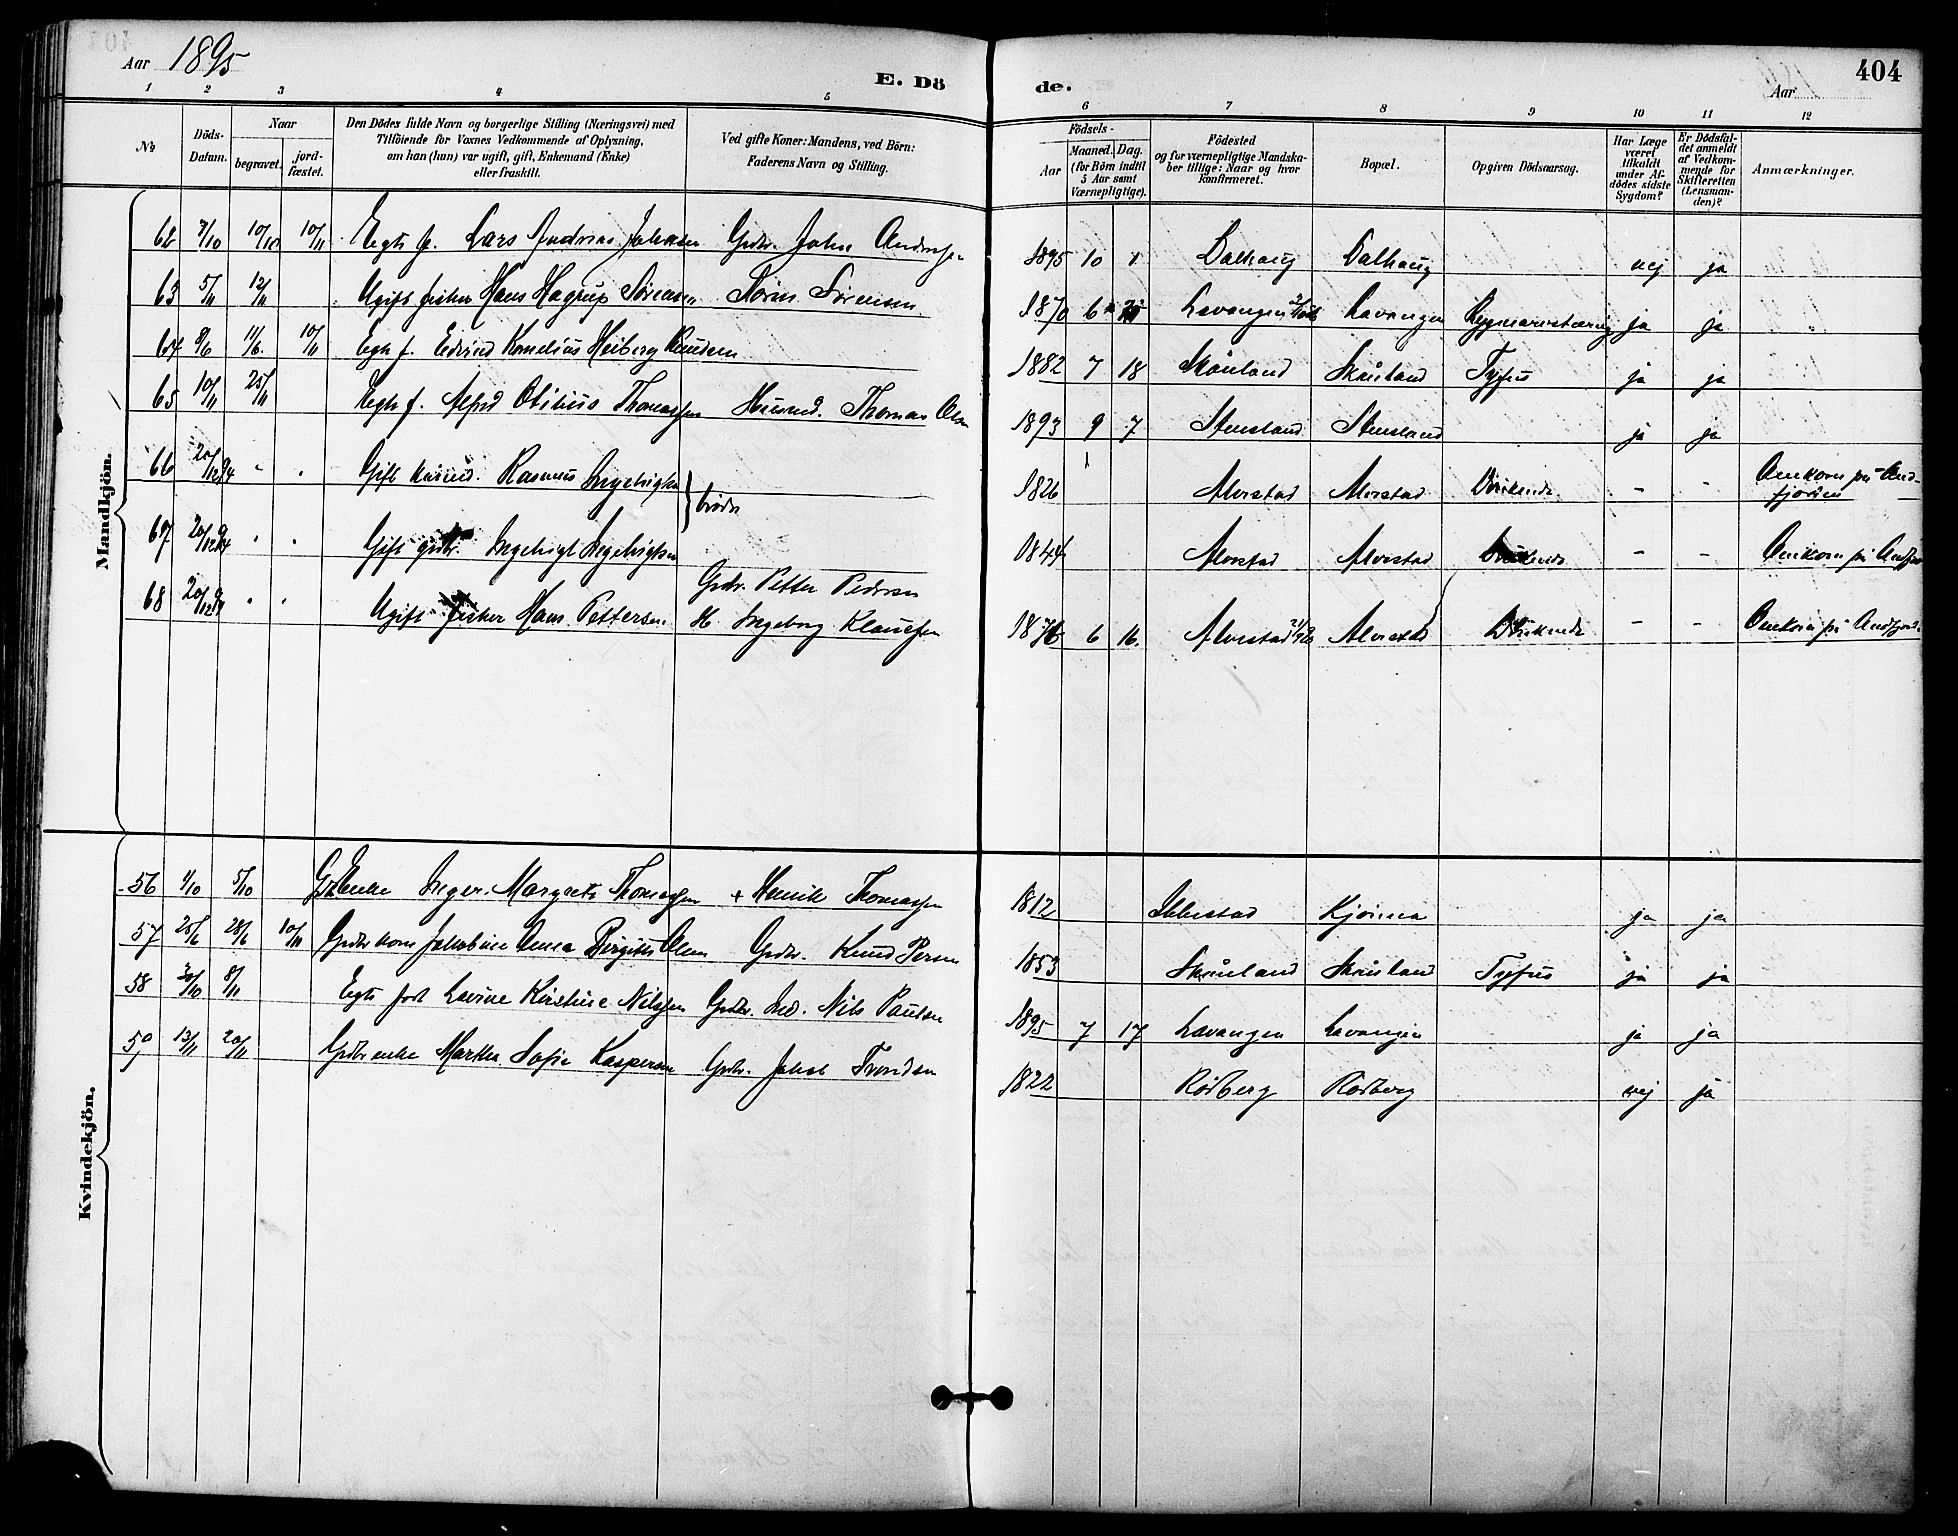 Aar 1895
E. Dö
de.
Aar
404
1 2 3 4 5 6 7 8 9 10 11 12
No
Döds-Datum.
Naar
begravet.
jord-fæstet.
Den Dödes fulde Navn og borgerlige Stilling (Næringsvei) med
Tilföiende for Voxnes Vedkommende af Oplysning,
om han (hun) var ugift, gift, Enkemand (Enke)
eller fraskilt.
Ved gifte Koner: Mandens, ved Börn:
Faderens Navn og Stilling.
Födsels-
Aar
Maaned. Dag.
(for Börn indtil
5 Aar samt
Værnepligtige).
Födested
og for værnepligtige Mandska-
ber tillige: Naar og hvor
konfirmeret.
Bopæl.
Opgiven Dödsaarsag.
Har Læge
været
tilkaldt
under Af-
dödes sidste
Sygdom?
Er Dödsfal-
det anmeldt
af Vedkom-
mende for
Skifteretten
(Lensman-
den)?
Anmærkninger.
Mandkjön.
62 7/10 10/10 10/11 Egte f. Lars Andreas Johnsen Grdbr. John Andersen 1895 10 1 Dalhaug Dalhaug nej ja
63 5/11 12/11 Ugift fisker Hans Hagrup Sörensen Sören Sörensen 1870 6 Lavangen Lavangen ja ja
64 8/6 11/6 10/11 Egte f. Edvind Kornelius Heiberg Knudsen 1882 7 18 Skånland Skånland Tyfus ja ja
65 10/11 25/11 Uegte f. Alfred Otilius Thomassen Husmd. Thomas Olsen 1893 9 7 Stensland Stensland ja ja
66 20/12 94 " " Gift husmd. Rasmus Ingebrigtsen } brödre 1826 Alvestad Alvestad Druknede - - Omkom på Andfjorden
67 20/12 94 " " Gift grdbr. Ingebrigt Ingebrigtsen 1844 Alvestad Alvestad Druknede - - Omkom på Andfjord
68 20/12 94 " " Ugift fisker Hans Pettersen Grdbr. Petter Pedersen
H. Ingeborg Klausen 1876 6 16. Alvestad Alvestad Druknede - - Omkom på Andfjord.
Kvindekjön.
56 1/10 5/10 Grdbr Enke Inger Margrete Thomassen + Henrik Thomassen 1812 Ibbestad Kjönna ja ja
57 25/6 28/6 10/11 Grdbr kone Jakobine Anna Birgitte Olsen Grdbr. Knud Persen 1853 Skånland Skånland Tyfus ja ja
58 30/10 8/11 Egte född Lavine Kirstine Nilssen Grdbr. Nils Paulsen 1895 7 17 Lavangen Lavangen ja ja
59 13/11 20/11 Grdbr enke Martha Sofie Kaspersen Grdbr. Jakob Trondsen 1822 Rödberg Rödberg nej ja